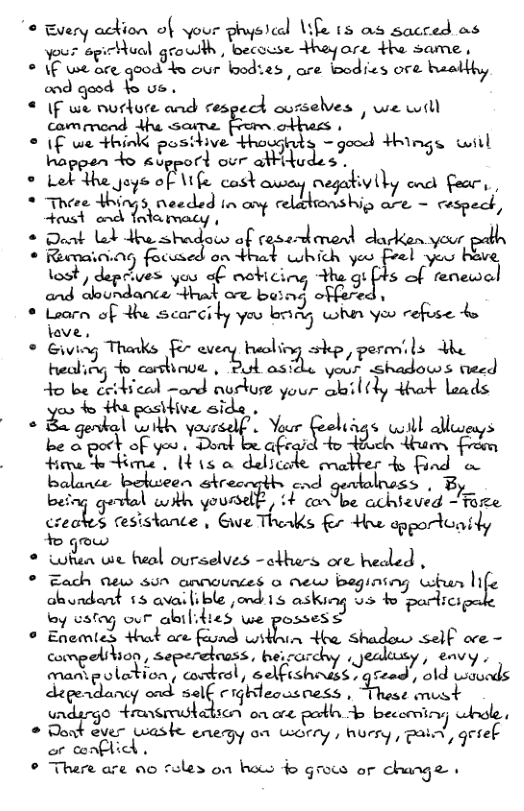 • Every action of your physical life is as sacred as
your spiritual growth, because they are the same.
• If we are good to our bodies, are bodies are healthy
and good to us.
• If we nurture and respect ourselves, we will
command the same from others.
• If we think positive thoughts - good things will
happen to support our attitudes.
• Let the joys of life cast away negativity and fear.
• Three things needed in any relationship are - respect,
trust and intamacy.
• Dont let the shadow of resentment darken your path
• Remaining focused on that which you feel you have
lost, deprives you of noticing the gifts of renewal
and abundance that are being offered.
• Learn of the scarcity you bring when you refuse to
love.
• Giving Thanks for every healing step, permits the
healing to continue. Put aside your shadows need
to be critical - and nurture your ability that leads
you to the positive side.
• Be gental with yourself. Your feelings will allways
be a part of you. Dont be afraid to touch them from
time to time. It is a delicate matter to find a
balance between strength and gentalness. By
being gental with yourself, it can be achieved - Force
creates resistance. Give Thanks for the opportunity
to grow
• When we heal ourselves - others are healed.
• Each new sun announces a new begining when life
abundant is availible, and is asking us to participate
by using our abilities we possess
• Enemies that are found within the shadow self are -
competition, seperetness, heirarchy, jealousy, envy,
manipulation, control, selfishness, greed, old wounds
dependancy and self righteousness. These must
undergo transmutation on are path to becoming whole.
• Dont ever waste energy on worry, hurry, pain, grief
or conflict.
• There are no rules on how to grow or change.